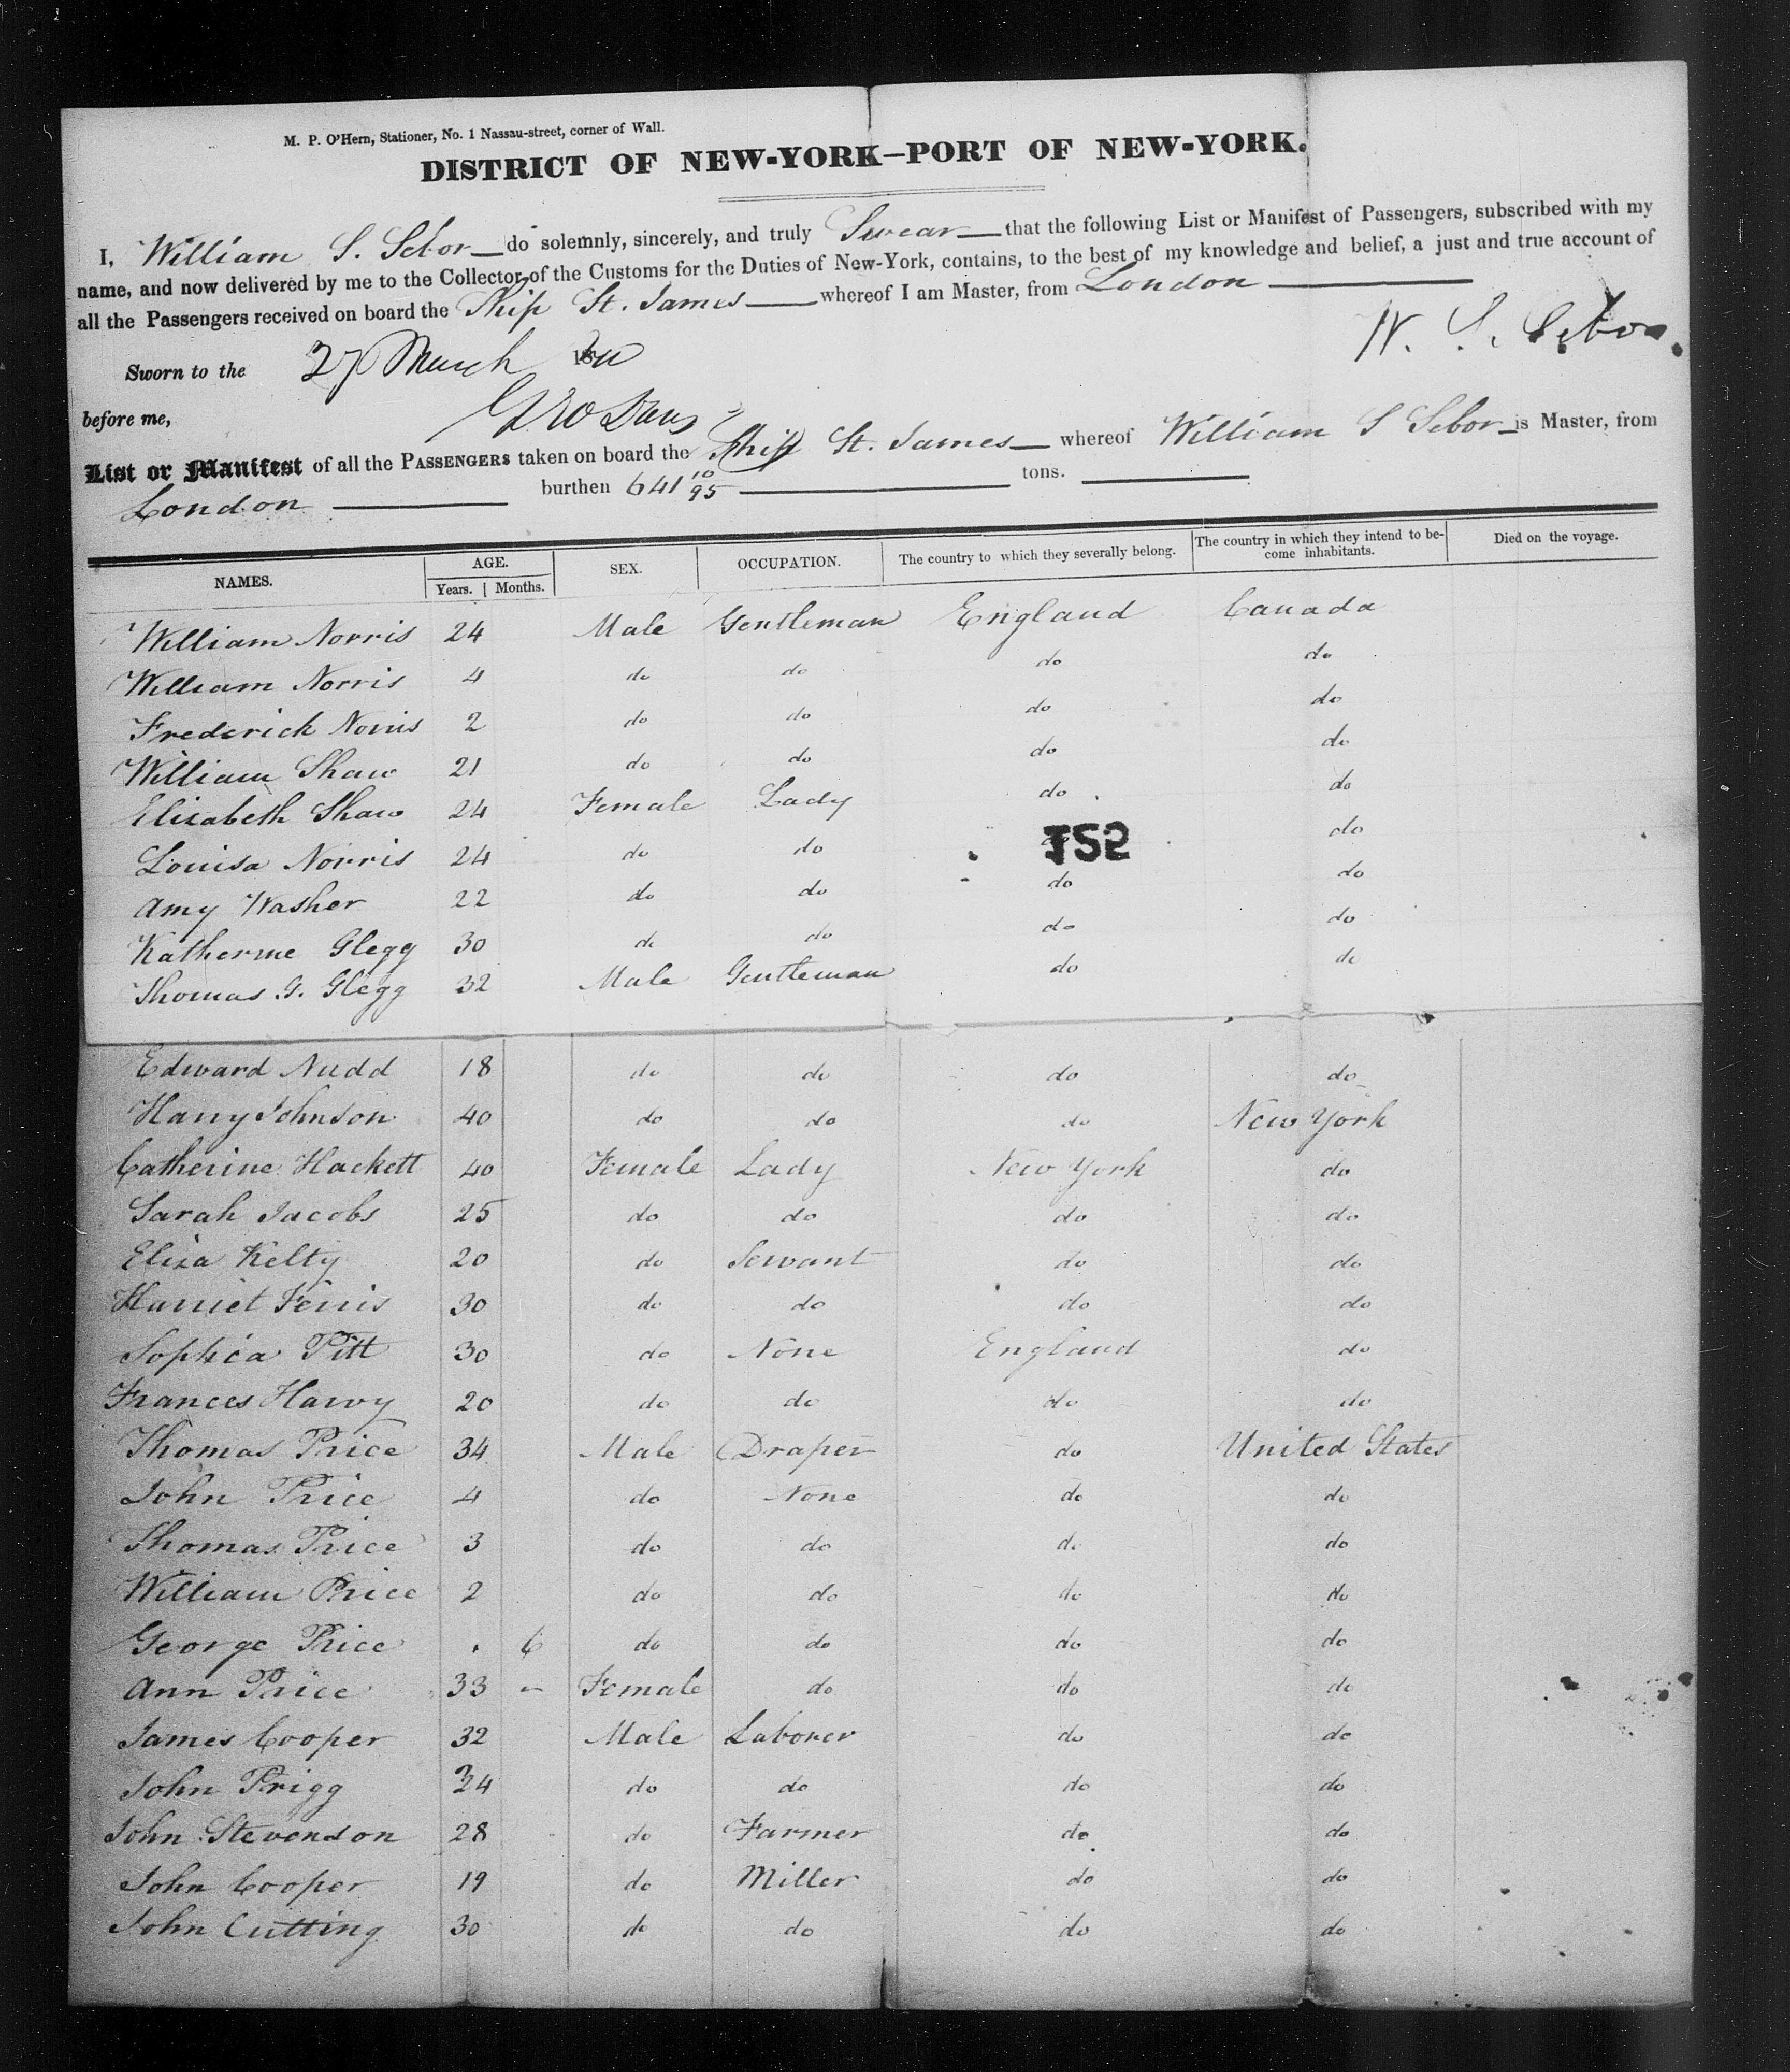 M. P. O'Hern, Stationer, No. 1 Nassau-street, corner of Wall.
DISTRICT OF NEW-YORK—PORT OF NEW-YORK.
I, William S. Sebor do solemnly, sincerely, and truly Swear that the following List or Manifest of Passengers, subscribed with my
name, and now delivered by me to the Collector of the Customs for the Duties of New-York, contains, to the best of my knowledge and belief, a just and true account of
all the Passengers received on board the Ship St. James whereof I am Master, from London
W. S. Sebor.
Sworn to the 27 March 1840
before me,
List or Manifest of all the PASSENGERS taken on board the Ship St. James whereof William S Sebor is Master, from
London burthen 641 10/95 tons.
NAMES. AGE. Years. Months. SEX. OCCUPATION. The country to which they severally belong. The country in which they intend to become inhabitants. Died on the voyage.
William Norris 24 Male Gentleman England Canada
William Norris 4 do do do do
Frederick Norris 2 do do do do
William Shaw 21 do do do do
Elizabeth Shaw 24 Female Lady do do
Louisa Norris 24 do do do
752
Amy Washer 22 do do do do
Katherine Glegg 30 do do do do
Thomas G. Glegg 32 Male Gentleman do do
Edward Nudd 18 do do do do
Harry Johnson 40 do do do New York
Catherine Hackett 40 Female Lady New York do
Sarah Jacobs 25 do do do do
Eliza Kelty 20 do Servant do do
Harriet Ferris 30 do do do do
Sophia Pitt 30 do None England do
Frances Harvy 20 do do do do
Thomas Price 34 Male Draper do United States
John Price 4 do None do do
Thomas Price 3 do do do do
William Price 2 do do do do
George Price . 6 do do do do
Ann Price 33 – Female do do do
James Cooper 32 Male Laborer do do
John Prigg 24 do do do do
John Stevenson 28 do Farmer do do
John Cooper 19 do Miller do do
John Cutting 30 do do do do